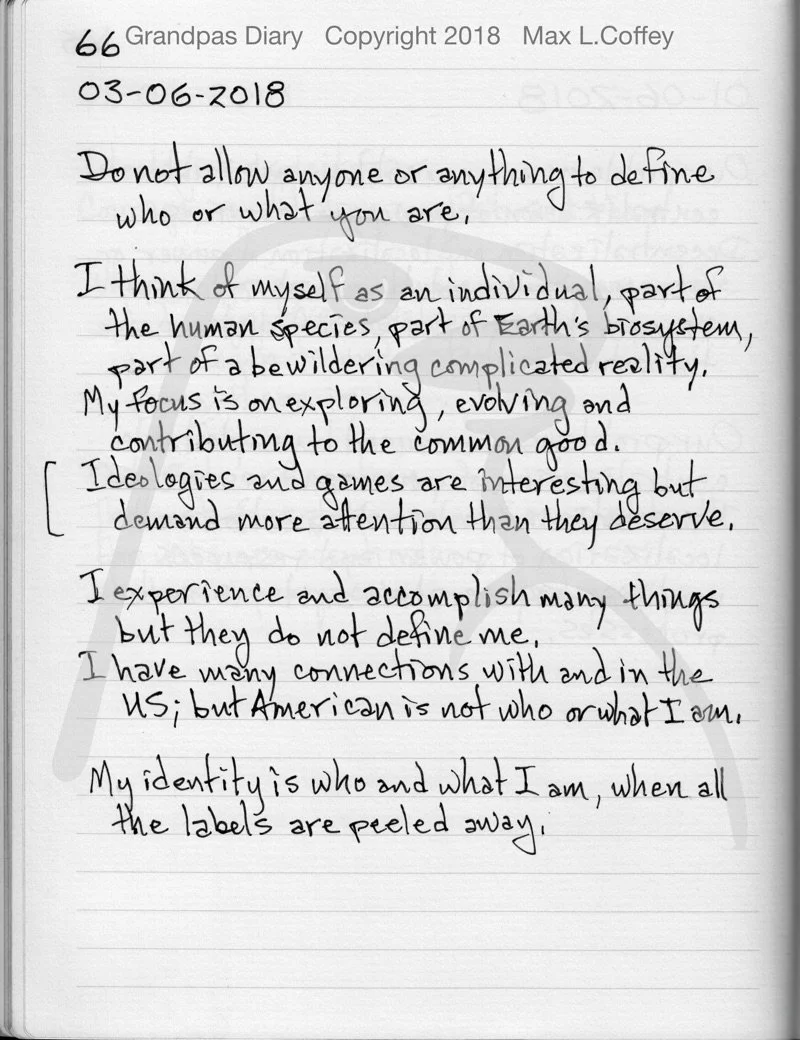 66 Grandpas Diary Copyright 2018 Max L.Coffey
03-06-2018
Do not allow anyone or anything to define
who or what you are.
I think of myself as an individual, part of
the human species, part of Earth's biosystem,
part of a bewildering complicated reality.
My focus is on exploring, evolving and
contributing to the common good.
[ Ideologies and games are interesting but
demand more attention than they deserve.
I experience and accomplish many things
but they do not define me.
I have many connections with and in the
US; but American is not who or what I am.
My identity is who and what I am, when all
the labels are peeled away.